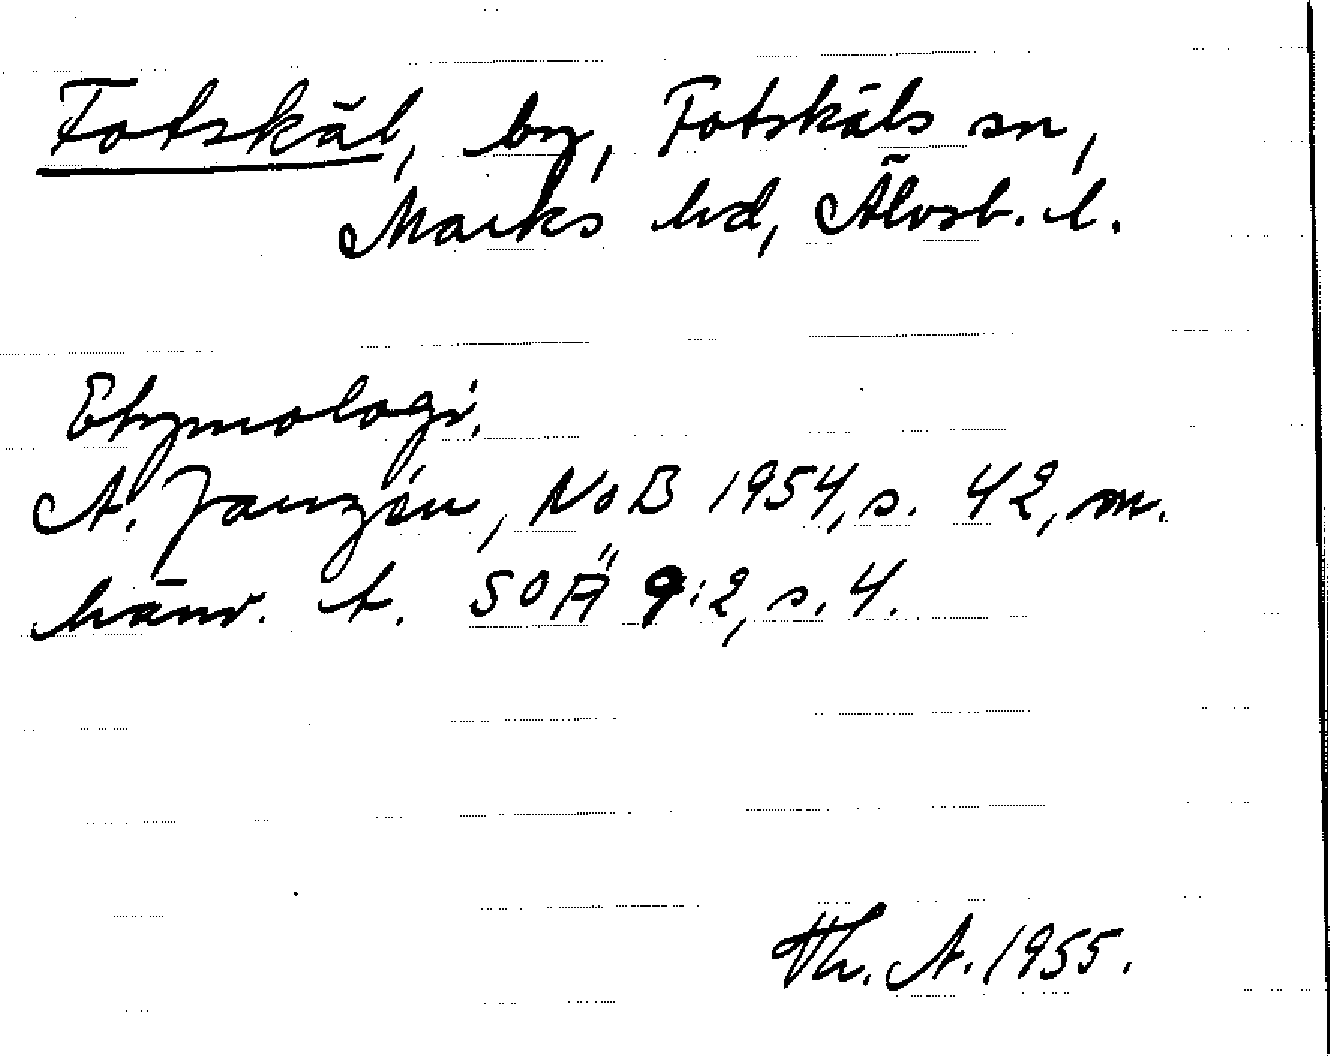 Fotskäl, by, Fotskäls sn,
Marks hd, Älvsb. l.
Etymologi.
A. Janzén, NoB 1954, s. 42, m.
hänv. t. SOÄ 9:2, s. 4.
Th. A. 1955.